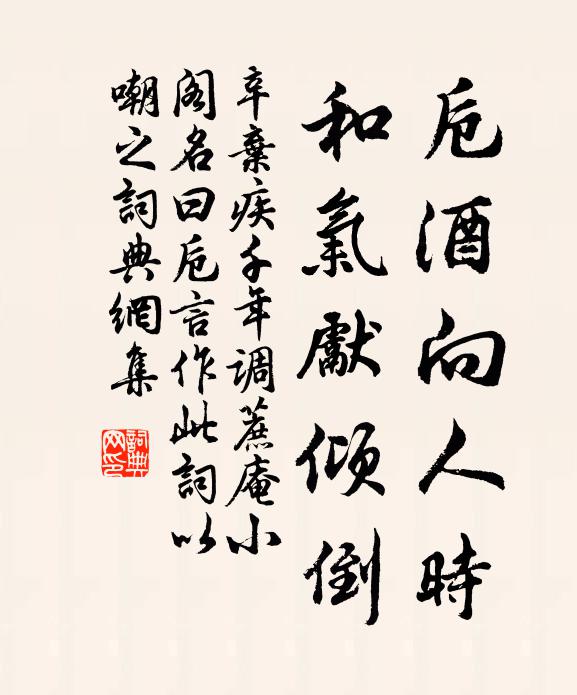 卮酒向人時
和氣獻傾倒
辛棄疾千年调蔗庵小
阁名曰卮言作此詞以
嘲之詞典網集
詞典
网印